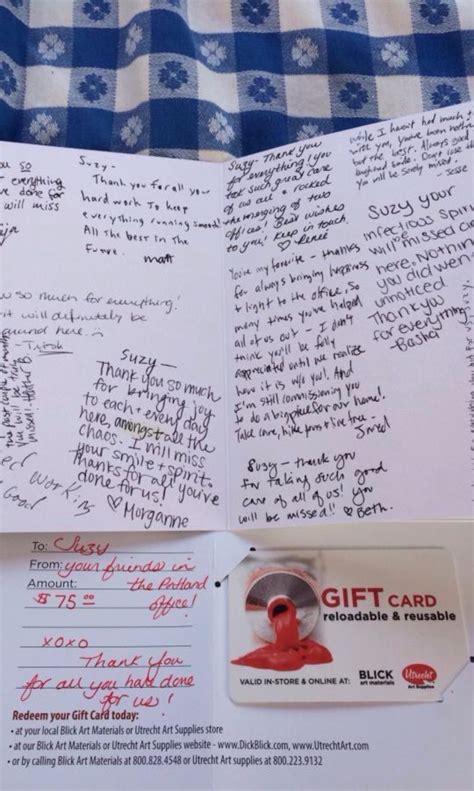 ou so
everything
ve done for
will miss
Suzy-
Thank you for all your
hard work to keep
everything running smooth!
All the best in the
Future.
matt
Suzy- Thank you
for everything! You
took such good care
of us all + rocked
the merging of two
offices! Best wishes
to you! Keep in touch.
♡ Renee
while I havent had much
with you, you've been nothing
but the best. Always
You will be sorely missed.
- Jesse
Suzy your
infectious spirit
will be missed
here. Nothing
you did went
unnoticed
Thank you
for everything
-Basha
You're my favorite - thanks
for always bringing happiness
+ light to the office, so
many times you've helped
all of us out - I don't
think you'll be fully
appreciated until we realize
how it is w/o you! And
I'm still commissioning you
to do a big piece for our home!
Take care, live free -
Jared
so much for everything!
it will definitely be
around here. :)
Suzy-
Thank you so much
for bringing joy
to each + every day
here, amongst all the
chaos. I will miss
your smile + spirit.
Thanks for all you've
done for us!
♡ Morganne
Working
Good
Suzy - thank you
for taking such good
care of all of us! you
will be missed!! ♡ Beth.
To: Suzy
From: your friends in
the Portland
office!
Amount:
$ 75 00
xoxo
Thank you
for all you have done
for us!
GIFT CARD
reloadable & reusable
VALID IN-STORE & ONLINE AT:
BLICK
art materials
Utrecht
Art Supplies
Redeem your Gift Card today:
• at your local Blick Art Materials or Utrecht Art Supplies store
• at our Blick Art Materials or Utrecht Art Supplies website - www.DickBlick.com, www.UtrechtArt.com
• or by calling Blick Art Materials at 800.828.4548 or Utrecht Art supplies at 800.223.9132